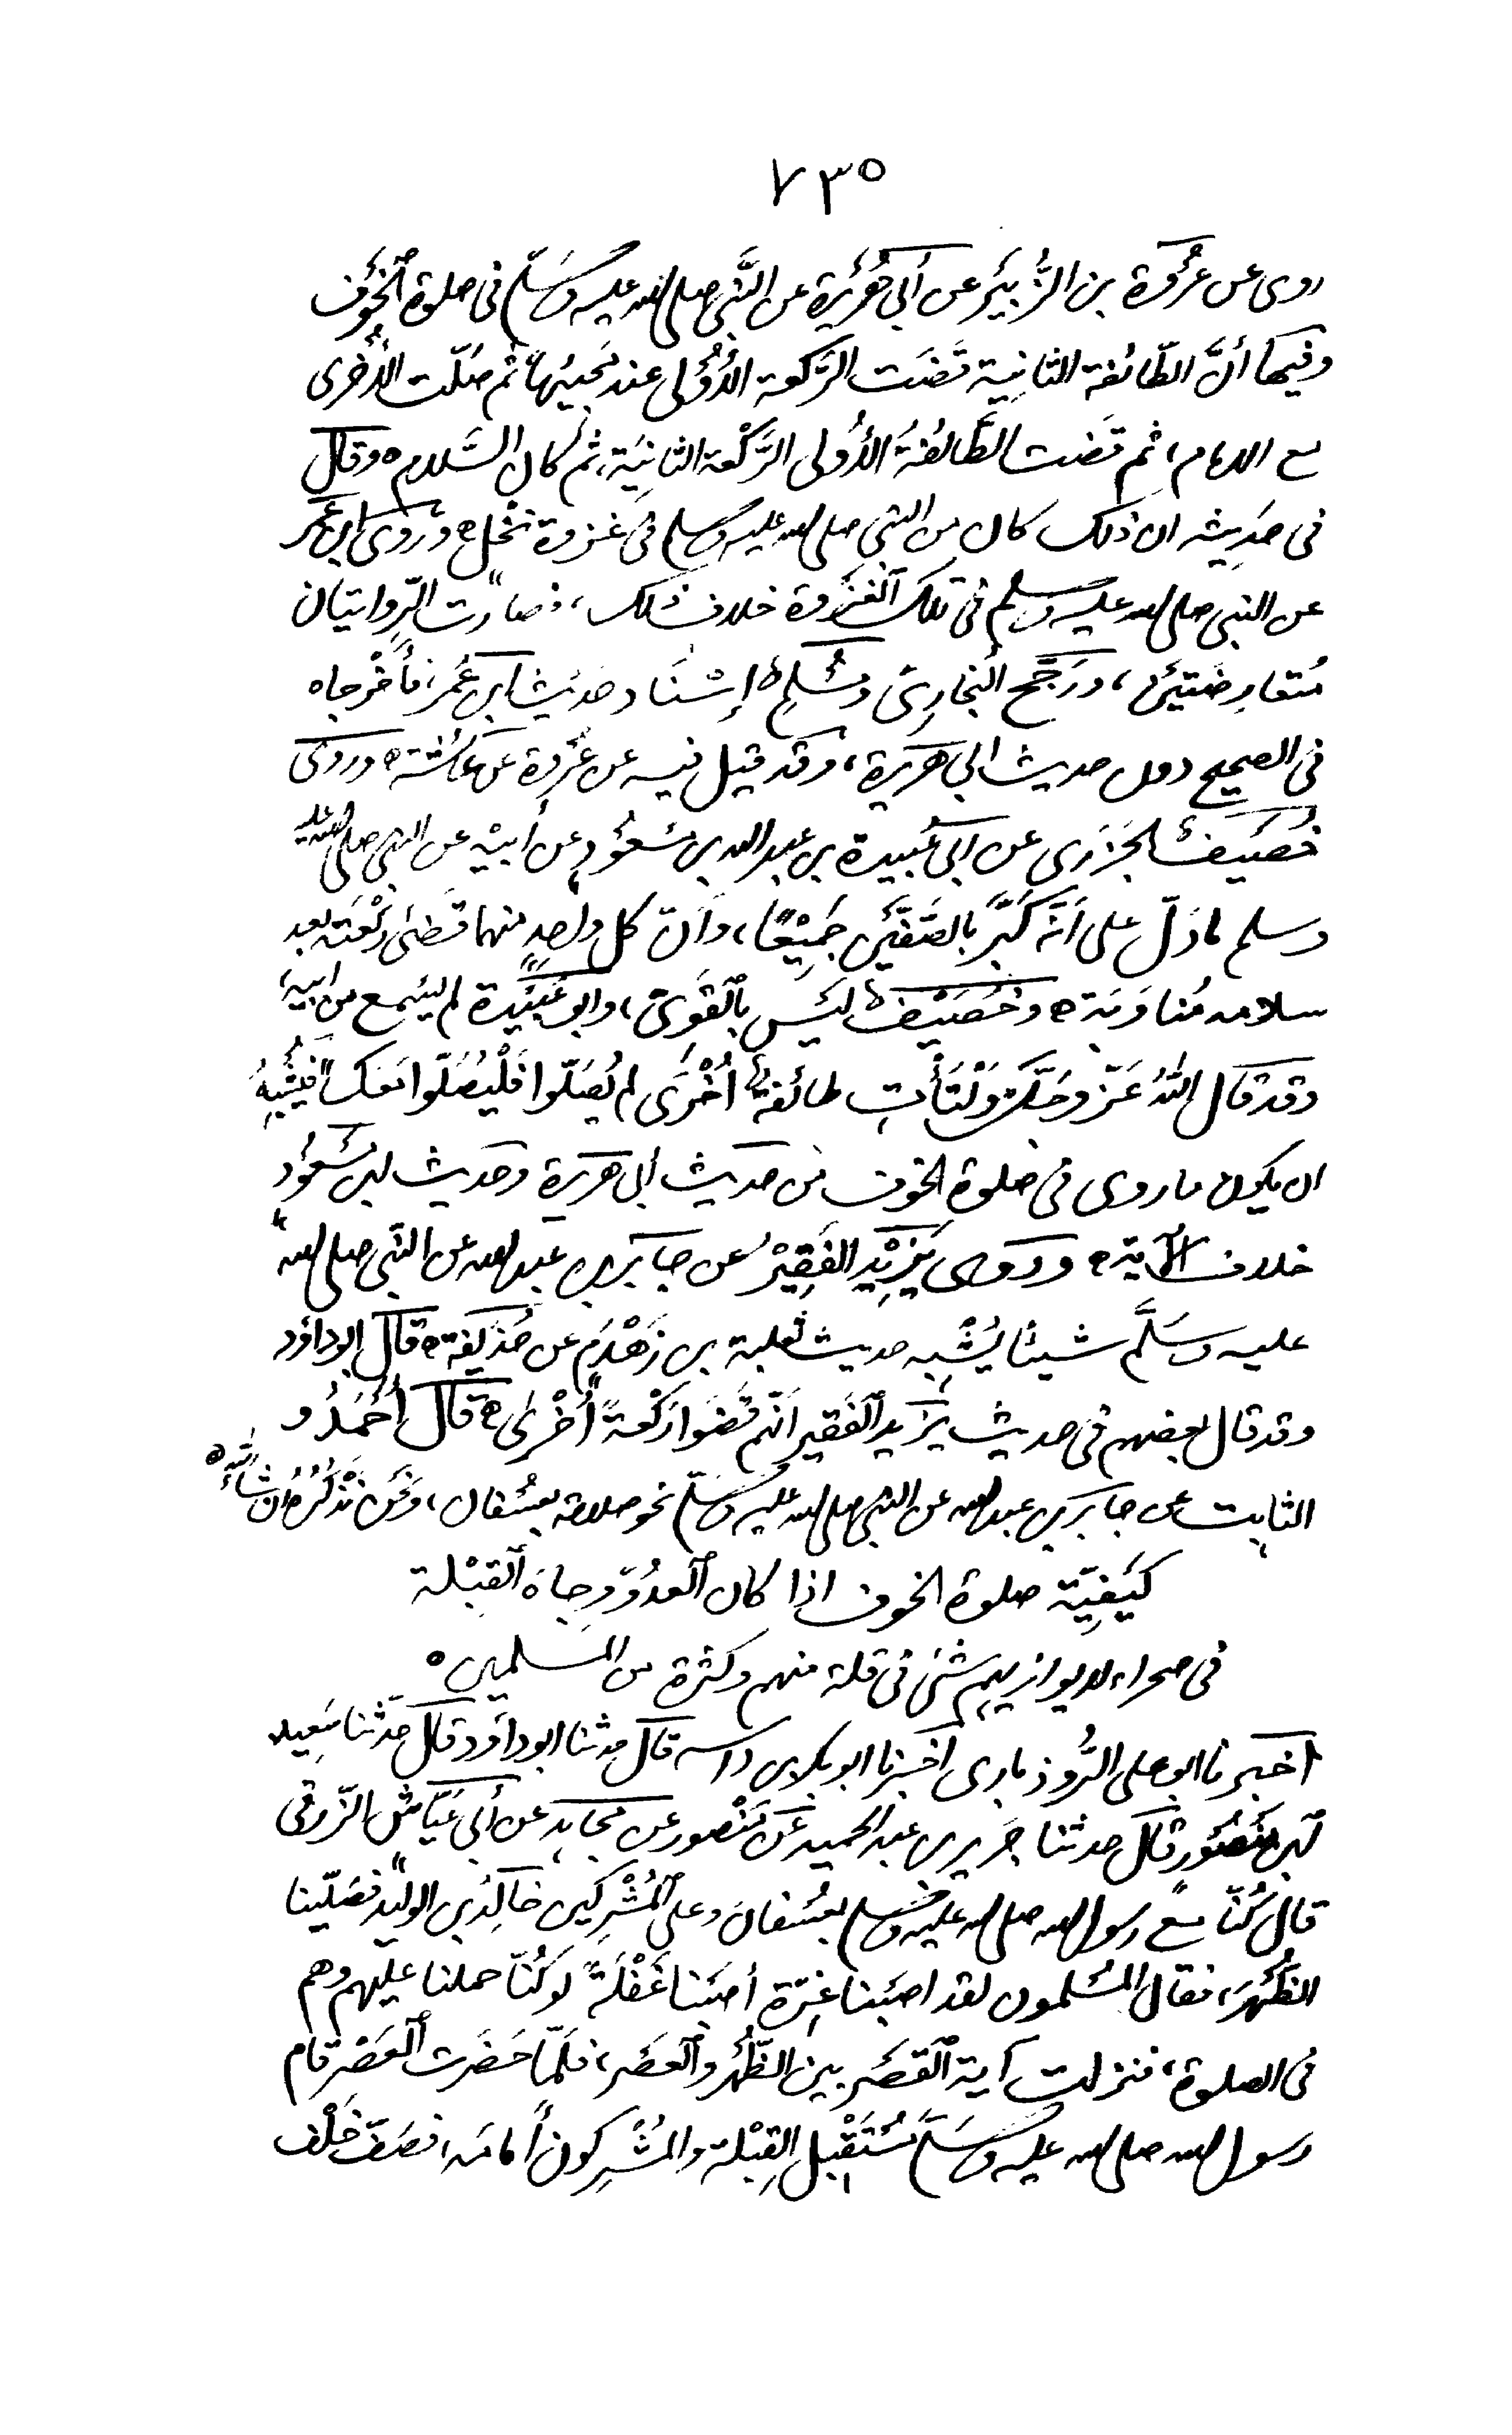 ٧٣٥
روى عن عُرْوَة بن الزُّبَيْر عن أبي هُرَيْرة عن النَّبي صلى الله عليه وسَلّم في صلوة الخَوْف
وفيها أنَّ الطّائفة الثانِية قَضَت الرَّكعة الأُوْلى عند مَجيئها ثم صَلّت الأُخْرى
مع الامام، ثم قَضت الطَّائفةُ الأُولى الرَّكْعة الثانِيَة، ثم كان السَّلام ه وقال
في حَدِيثه ان ذلك كان من النبي صلى الله عليه وسلم في غَزوة نَخْل ه ورَوى ابن عُمَر
عن النبي صلى الله عليه وسلم في تلك الغَزْوة خلاف ذلك، فصارت الرِّوايتان
مُتعارِضَتَيْن، ورَجَّح البُخارِيّ ومُسْلمٌ إسْنَاد حَدِيث ابن عُمَر، فأَخْرجاه
في الصحيح دون حديث ابي هريرة، وقد قيل فيه عن عُرْوة عن عَائشَة ه وروى
خُصَيْفٌ الجَزَرى عن ابي عُبَيدة بن عبد الله بن مَسْعُوْدٍ عن أبيْه عن النبي صلى الله عليه
وسلم ما دَلّ على أنَّه كَبَّر بالصَّفَّيْن جَمِيْعًا، وأنّ كل واحدٍ منهما قَضى رَكْعَته بعد
سلامه مُناوَبَة ه وخُصَيْفٌ لَيْس بالقَوىّ، وابو عُبَيْدة لم يَسْمع من ابيه،
وقد قال اللهُ عَزّ وجَلّ وَلْتَأْتِ طائفةٌ أُخْرَى لم يُصَلّوا فَلْيُصَلّوا مَعَك فيُشْبِهُ
ان يكون ما روى في صلوة الخوف من حديث أبي هريرة وحديث ابن مسعود
خلاف الآية ه وروى يَزِيْد الفَقِيْر عن جابر بن عبد الله عن النّبي صلى الله
عليه وسَلَّم شيئا يُشْبِه حديث ثعلبة بن زَهْدَم عن حُذَيفة ه قال ابو داؤد
وقد قال بعضهم في حديث يَزِيد الفَقير انّهم قَضَوا رَكْعةً أُخْرى ه قال أحْمَدُ و
الثابت عن جابر بن عبد الله عن النبي صلى الله عليه وسَلّم نحو صلاته بعُسْفان، ونَحْن نَذْكُرُه ان شاء الله ه
كَيْفِيّة صلوة الخوف اذا كان العدُوّ وِجاهَ القِبْلة
في صحراء لا يواريهم شئ في قلة منهم وكثرة من المسلمين ه
أخبرنا ابو على الرُّوذباري اخبرنا ابو بكر بن داسه قال حدثنا ابو داؤد قال حَدّثنا سَعِيد
بن مَنْصُور قال حدثنا جَرير بن عبد الحميد عن مَنْصور عن مجاهد عن أبي عَيّاش الزّرقي
قال كُنّا مع رسول الله صلى الله عليه وسلم بعُسْفانَ وعلى المُشْركين خَالِدُ بن الوليد فصَلّينا
الظُّهرَ، فقال المُسْلمون لقد اصَبْنا غِرّة أصَبْنا غَفْلَةً لو كُنّا حملنا عليهم وهم
في الصلوة، فنزلت آية القصَر بين الظُّهْر والعصَر، فلَمّا حَضَرت العَصْر قام
رسول الله صلى الله عليه وسَلَّم مُسْتَقْبِل القِبْلة والمُشْركون أمامَه، فصَفّ خَلْف